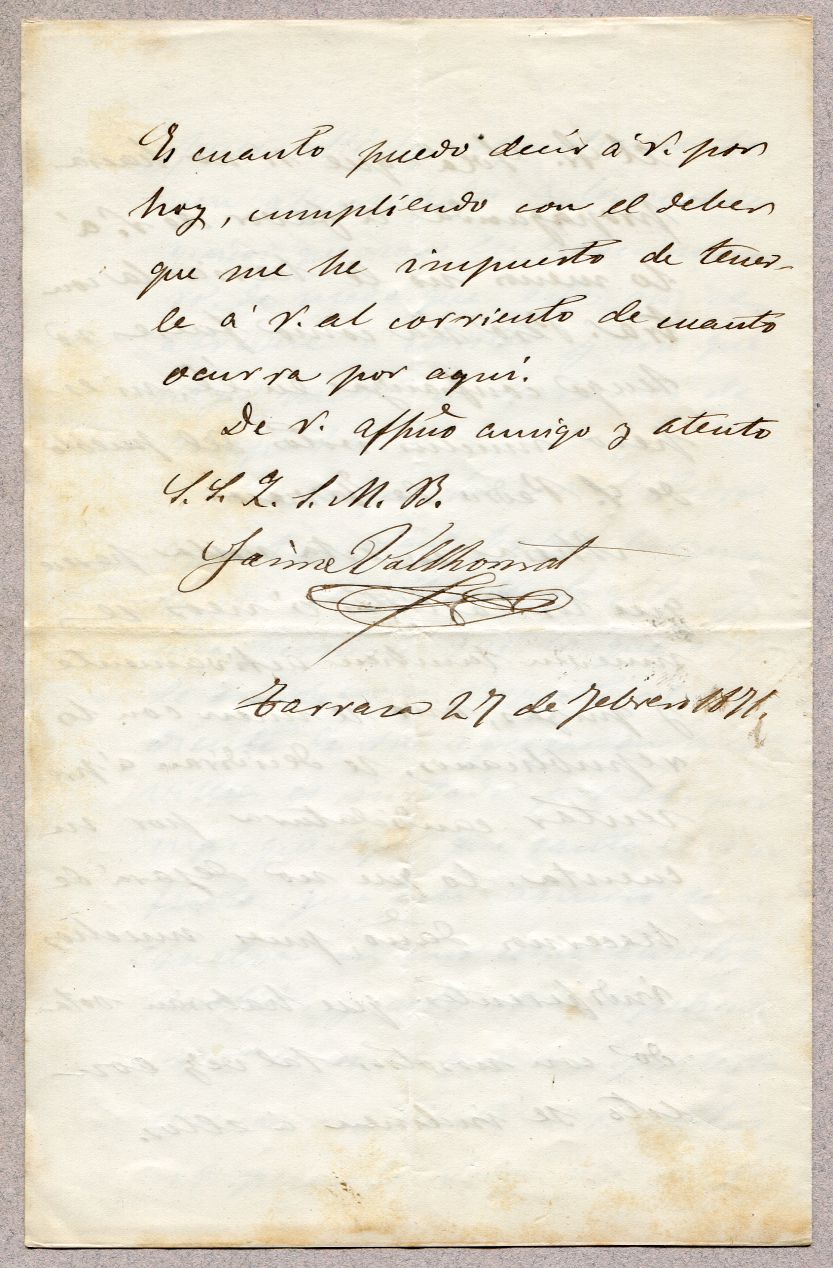 Es cuanto puedo decir á V. por
hoy, cumpliendo con el deber
que me he impuesto de tener-
le á V. al corriente de cuanto
ocurra por aquí.
De V. affmo amigo y atento
S. S. Q. S. M. B.
Jaime Vallhonrat
Tarrasa 27 de Febrero 1871.